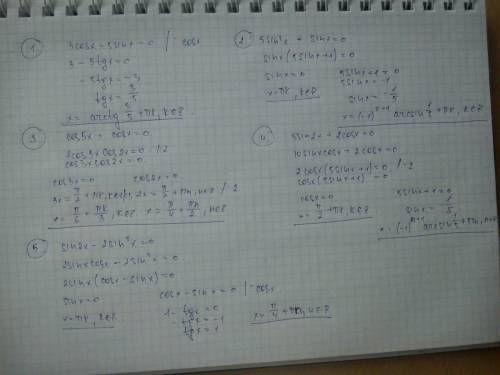 1
3cosx - 5sinx = 0 /: cosx
3 - 5tgx = 0
- 5tgx = -3
tgx = 3/5
x = arctg 3/5 + πk, k∈Z
2
5sin²x + sinx = 0
sinx(5sinx+1) = 0
sinx = 0
x = πk, k∈Z
5sinx+1 = 0
5sinx = -1
sinx = -1/5
x = (-1)ⁿ⁺¹ arcsin 1/5 + πk, k∈Z
3
cos5x + cosx = 0
2cos3x cos2x = 0 /:2
cos3x cos2x = 0
cos3x = 0
3x = π/2 + πk, k∈Z /:3
x = π/6 + πk/3, k∈Z
cos2x = 0
2x = π/2 + πn, n∈Z /:2
x = π/4 + πn/2, n∈Z
4
5sin2x + 2cosx = 0
10sinxcosx + 2cosx = 0
2cosx(5sinx+1) = 0 /:2
cosx(5sinx+1) = 0
cosx = 0
x = π/2 + πk, k∈Z
5sinx+1 = 0
sinx = -1/5
x = (-1)ⁿ⁺¹ arcsin 1/5 + πn, n∈Z
5
sin2x - 2sin²x = 0
2sinxcosx - 2sin²x = 0
2sinx(cosx - sinx) = 0
sinx = 0
x = πk, k∈Z
cosx - sinx = 0 /: cosx
1 - tgx = 0
- tgx = -1
tgx = 1
x = π/4 + πn, n∈Z